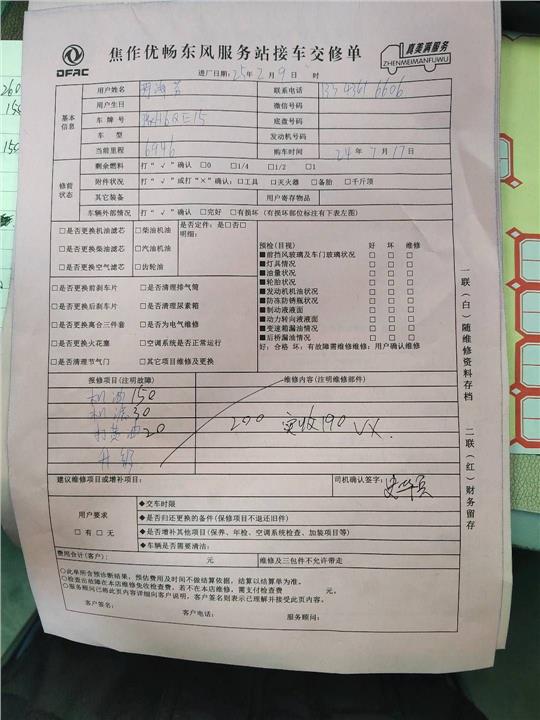 DFAC
焦作优畅东风服务站接车交修单
真美满服务
ZHENMEIMANFUWU
进厂日期：25年2月9日 时
用户姓名
联系电话
基本信息
用户生日
微信号码
车牌号
底盘号
车型
发动机号
当前里程 6946
购车时间 24年7月17日
修前状态
剩余燃料 打“√”确认 □0 □1/4 □1/2 □1
附件状况 打“√”或打“×”确认：□工具 □灭火器 □备胎 □千斤顶
其它装备 用户寄存物品
车辆外部情况 打“√”确认 □完好 □有损坏（有损坏部位标注有下表左图）
□是否更换机油滤芯 □柴油机油 是否定件：是□否□
明细：
□是否更换柴油滤芯 □汽油机油
□是否更换空气滤芯 □齿轮油
□是否更换前刹车片 □是否清理排气筒
□是否更换后刹车片 □是否清理尿素箱
□是否更换离合三件套 □是否为电气维修
□是否更换火花塞 □空调系统是否正常运行
□是否清理节气门 □其它项目维修及更换
预检(目视) 好 坏 维修
■前挡风玻璃及车门玻璃状况 □ □ □
■灯具情况 □ □ □
■油量状况 □ □ □
■轮胎状况 □ □ □
■发动机机油状况 □ □ □
■防冻防锈瓶状况 □ □ □
■制动液液面 □ □ □
■动力转向液液面 □ □ □
■变速箱漏油情况 □ □ □
■后桥漏油情况 □ □ □
好：合格 坏：有故障需维修维修：用户确认维修
报修项目(注明故障) 维修内容(注明维修部件)
机油 150
机滤 30
打黄油 20
200 实收190 VX.
升级
建议维修项目或增补项目： 司机确认签字：
用户要求
□有 □无
◆交车时限
◆是否归还更换的备件(保修项目不退还旧件)
◆是否增补其他项目(保养、年检、空调系统检查、加装项目等)
◆车辆是否需要清洁：
费用合计(客户)： 元 维修及三包件不允许带走
○此单所含预诊断结果，预估费用及时间不做结算依据，结算以结算单为准。
○检查出故障在本店维修免收检查费，若不在本店维修，需支付检查费 元。
○服务顾问已将此页内容详细向客户说明，客户签名则表示已理解并接受此页内容。
客户签名： 客户电话： 服务顾问：
一联（白）随维修资料存档
二联（红）财务留存